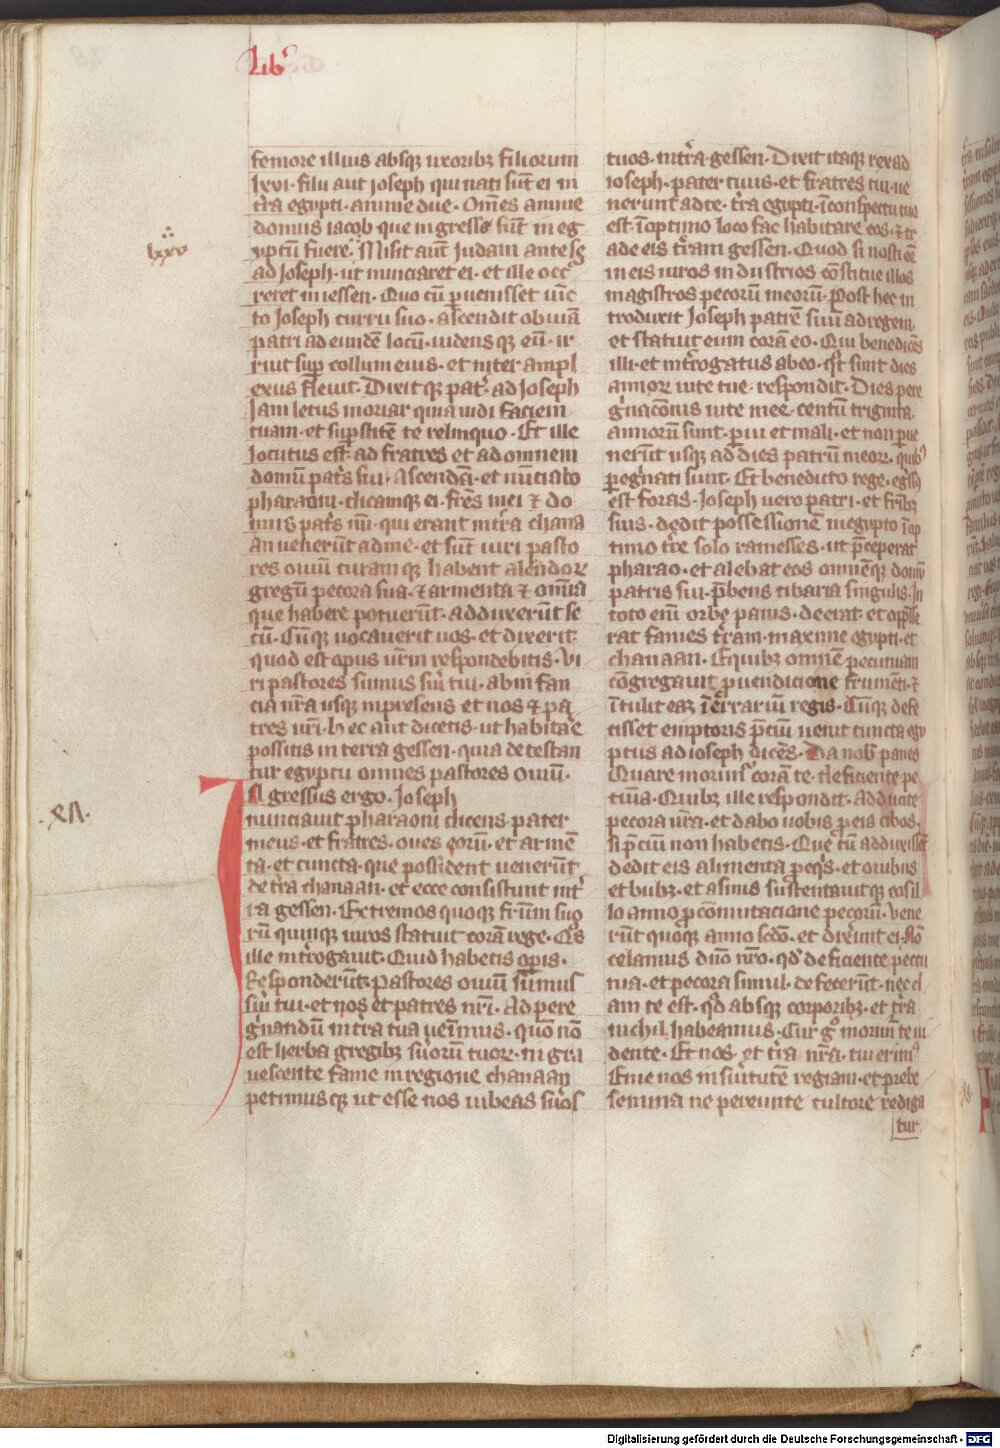 Lib
femore illius absqꝫ uxoribꝫ filiorum
lxvi· filii aut̄ ioseph qui nati sūt ei in
tr̄a egypti· anime due· Om̄es anime
domus iacob que ingresse sūt in eg
yptū fuere· Misit aūt Judam ante se
ad Joseph· ut nunciaret ei· et ille occ
reret in iessen· Quo cū ꝑuenisset iūc
to Joseph curru suo· ascendit obuiā
patri ad eundē locū· uidensqꝫ eū· ir
ruit suꝑ collum eius· et inter ampl
exus fleuit· Dixitqꝫ pat̄ ad Joseph
Jam letus moriar quia uidi faciem
tuam· et suꝑstitē te relinquo· Et ille
locutus est ad fratres et ad omnem
domū pat̄s sui· Ascendā· et nūciabo
pharaoni· dicamqꝫ ei· fr̄es mei ⁊ do
mus pat̄s mī· qui erant in tr̄a chana
an uenerūt ad me· et sūt uiri pasto
res ouiū curamqꝫ habent alendoꝝ
gregū pecora sua· ⁊ armenta ⁊ om̄ia
que habere potuerūt· adduxerūt se
cū· Cūqꝫ uocauerit uos· et dixerit
quod est opus ur̄m respondebitis· Vi
ri pastores sumus sūi tui· ab infan
cia nr̄a usqꝫ in presens et nos ⁊ pa
tres nr̄i· hec aut dicetis· ut habitar̄e
possitis in terra gessen· quia detestan
tur egyptii omnes pastores ouiū·
Jngressus ergo· Joseph
nunciauit pharaoni dicens· pater
meus· et fratres· oues eorū· et armē
ta· et cuncta· que possident uenerūt
de tr̄a chanaan· et ecce consistunt in t̄
ra gessen· Extremos quoqꝫ fr̄um suo
rū quinqꝫ uiros statuit corā rege· Qͦs
ille int̄rogauit· Quid habetis oꝑis·
Responderūt· pastores ouiū sumus
sūi tui· et nos et patres nr̄i· Ad pere
gnandū in tr̄a tua uenimus· quō nō
est herba gregibꝫ sūorū tuoꝝ· in gra
uescente fame in regione chanaan
petimusqꝫ ut esse nos iubeas sūos
lxxv
·xlvii·
tuos· in tr̄a gessen· Dixit itaqꝫ rex ad
ioseph· pater tuus· et fratres tui· ue
nerunt ad te· tr̄a egypti· ī conspectu tuo
est· ī optimo loco fac habitare eos· ⁊ tr
ade eis tr̄am gessen· Quod si nosti eē
in eis uiros industrios cōstitue illos
magistros pecorū meorū· Post hec in
troduxit Joseph patrē suū ad regem
et statuit eum corā eo· Qui benedicēs
illi· et int̄rogatus ab eo· qͦt sunt dies
annoꝝ uite tue· respondit· Dies pere
gͥnacōnis uite mee· centū triginta
annorū sunt· ꝑui et mali· et non ꝑue
nerūt usqꝫ ad dies patrū meoꝝ· quibꝰ
ꝑegͥnati sunt· Et benedicto rege· egr̄ss
est foras· Joseph uero patri· et fr̄ibꝫ
suis· dedit possessionē in egypto ī op
timo tr̄e solo ramesses· ut p̄ceperat
pharao· et alebat eos omnēqꝫ domū
patris sui· p̄bens cibaria singulis· In
toto eni orbe panis· deerat· et opp̄sse
rat fames tr̄am· maxime egypti· et
chanaan· E quibꝫ omnē pecuniam
cōgregauit ꝓ uendicione frumēti· ⁊
ītulit eaꝫ ī errariū regis· Cūqꝫ defe
cisset emptoris p̄ciū uenit cuncta egy
ptus ad ioseph dicēs· Da nob̄ panes
Quare morimͬ corā te· deficiente pe
cūia· Quibꝫ ille respondit· Adducite
pecora ur̄a· et dabo uobis ꝓ eis cibos·
si p̄ciū non habetis· Que cū adduxissēt
dedit eis alimenta ꝓ eqͥs· et ouibus
et bubꝫ· et asinis sustentauitqꝫ eos il
lo anno ꝓ cōmutacione pecorū· Vene
rūt quoqꝫ anno scd̄o· et dixerūt ei· Nō
celamus dn̄o nr̄o· qd̄ deficiente pecu
nia· et pecora simul· defecerūt· nec cl
am te est· qd̄ absqꝫ corporibꝫ· et tr̄a
nichil habeamus· Cur gͦ morimͬ te ui
dente· Et nos· et tr̄a nr̄a· tui erimꝰ
Eme nos in sūitutē regiam· et prebe
semina ne pereunte cultore rediga
tur